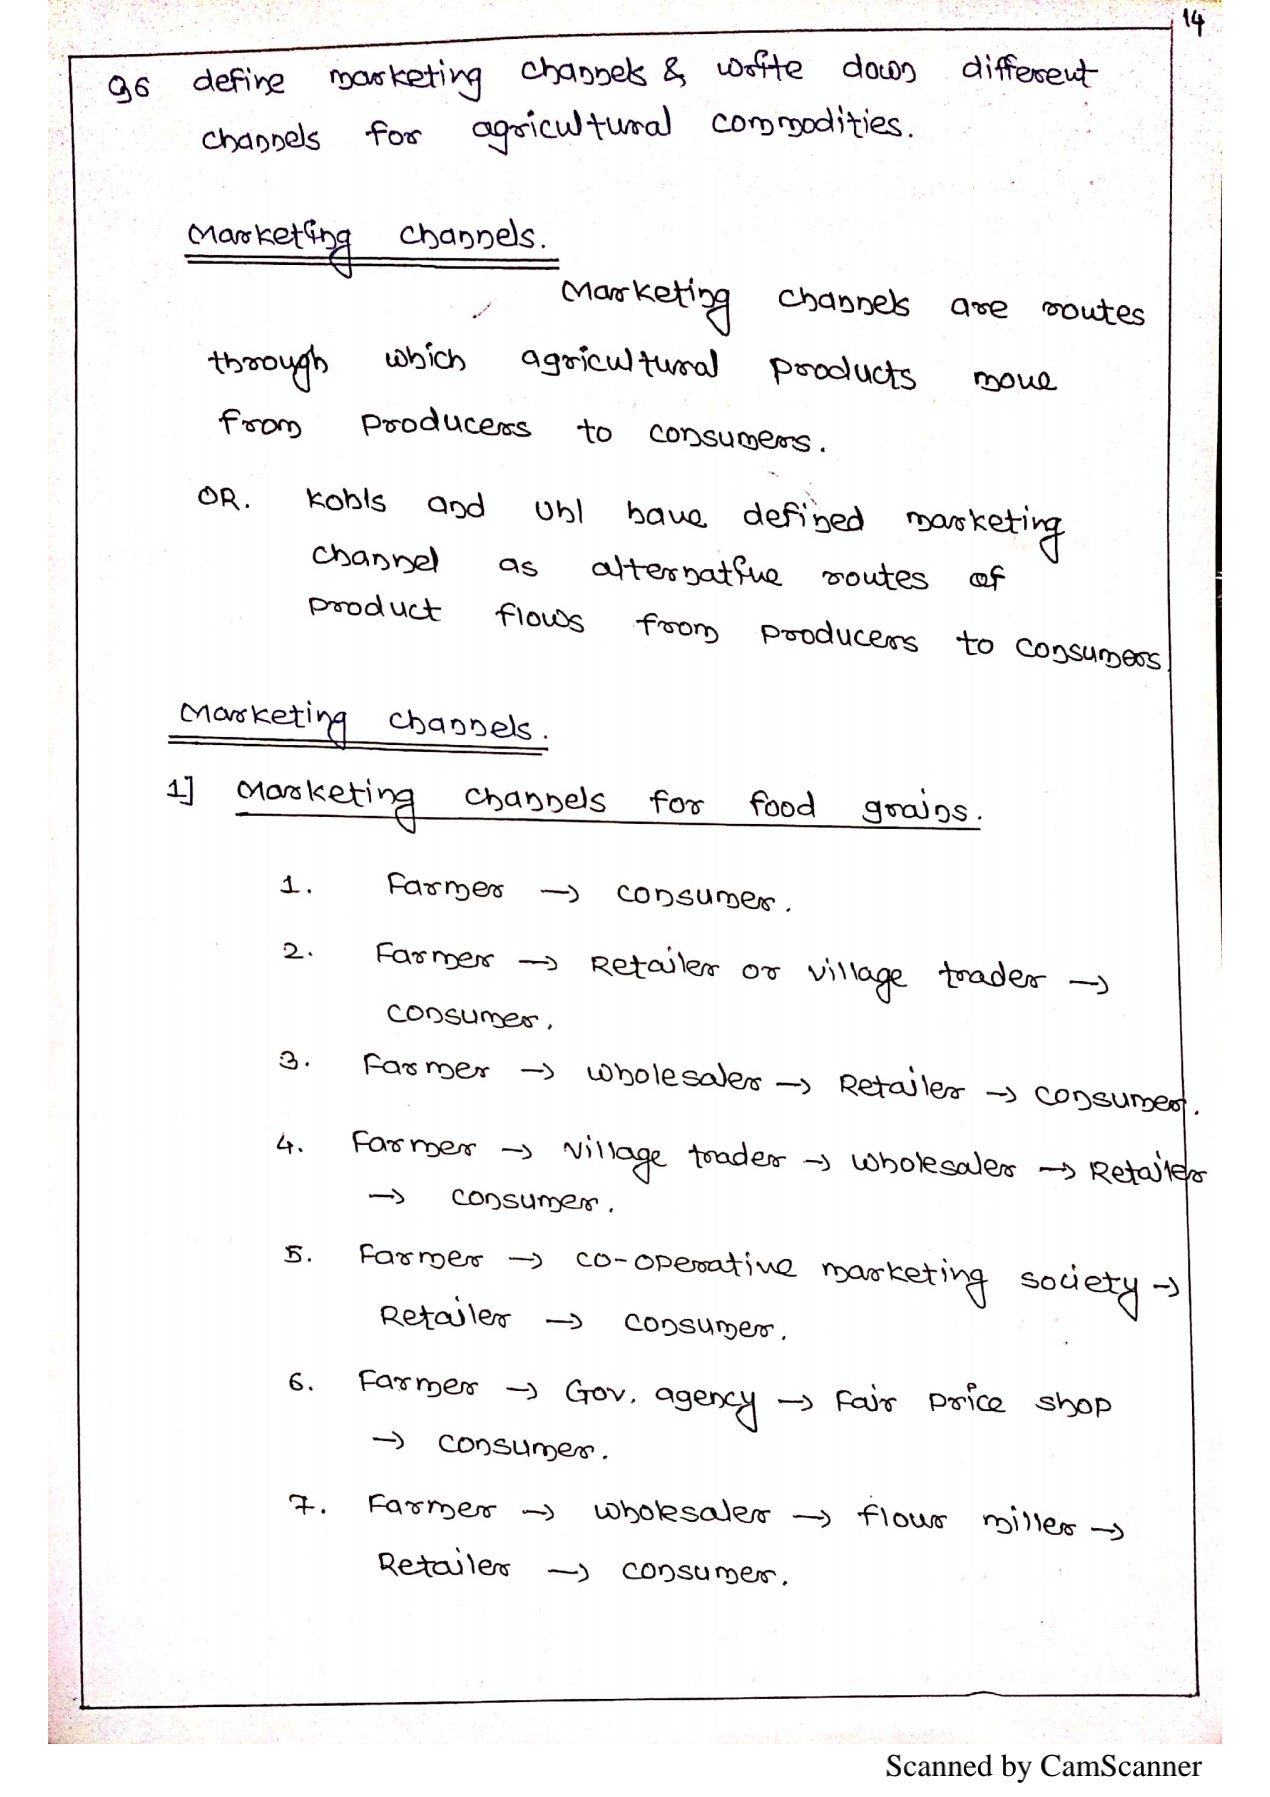 14
Q6 define marketing channels & write down different
channels for agricultural commodities.
Marketing channels.
Marketing channels are routes
through which agricultural products move
from producers to consumers.
OR. Kohls and Uhl have defined marketing
channel as alternative routes of
product flows from producers to consumers
Marketing channels.
1] Marketing channels for food grains.
1. Farmer → consumer.
2. Farmer → Retailer or village trader →
consumer.
3. Farmer → wholesaler → Retailer → consumer.
4. Farmer → village trader → wholesaler → Retailer
→ consumer.
5. Farmer → co-operative marketing society →
Retailer → consumer.
6. Farmer → Gov. agency → Fair price shop
→ consumer.
7. Farmer → wholesaler → flour miller →
Retailer → consumer.
Scanned by CamScanner